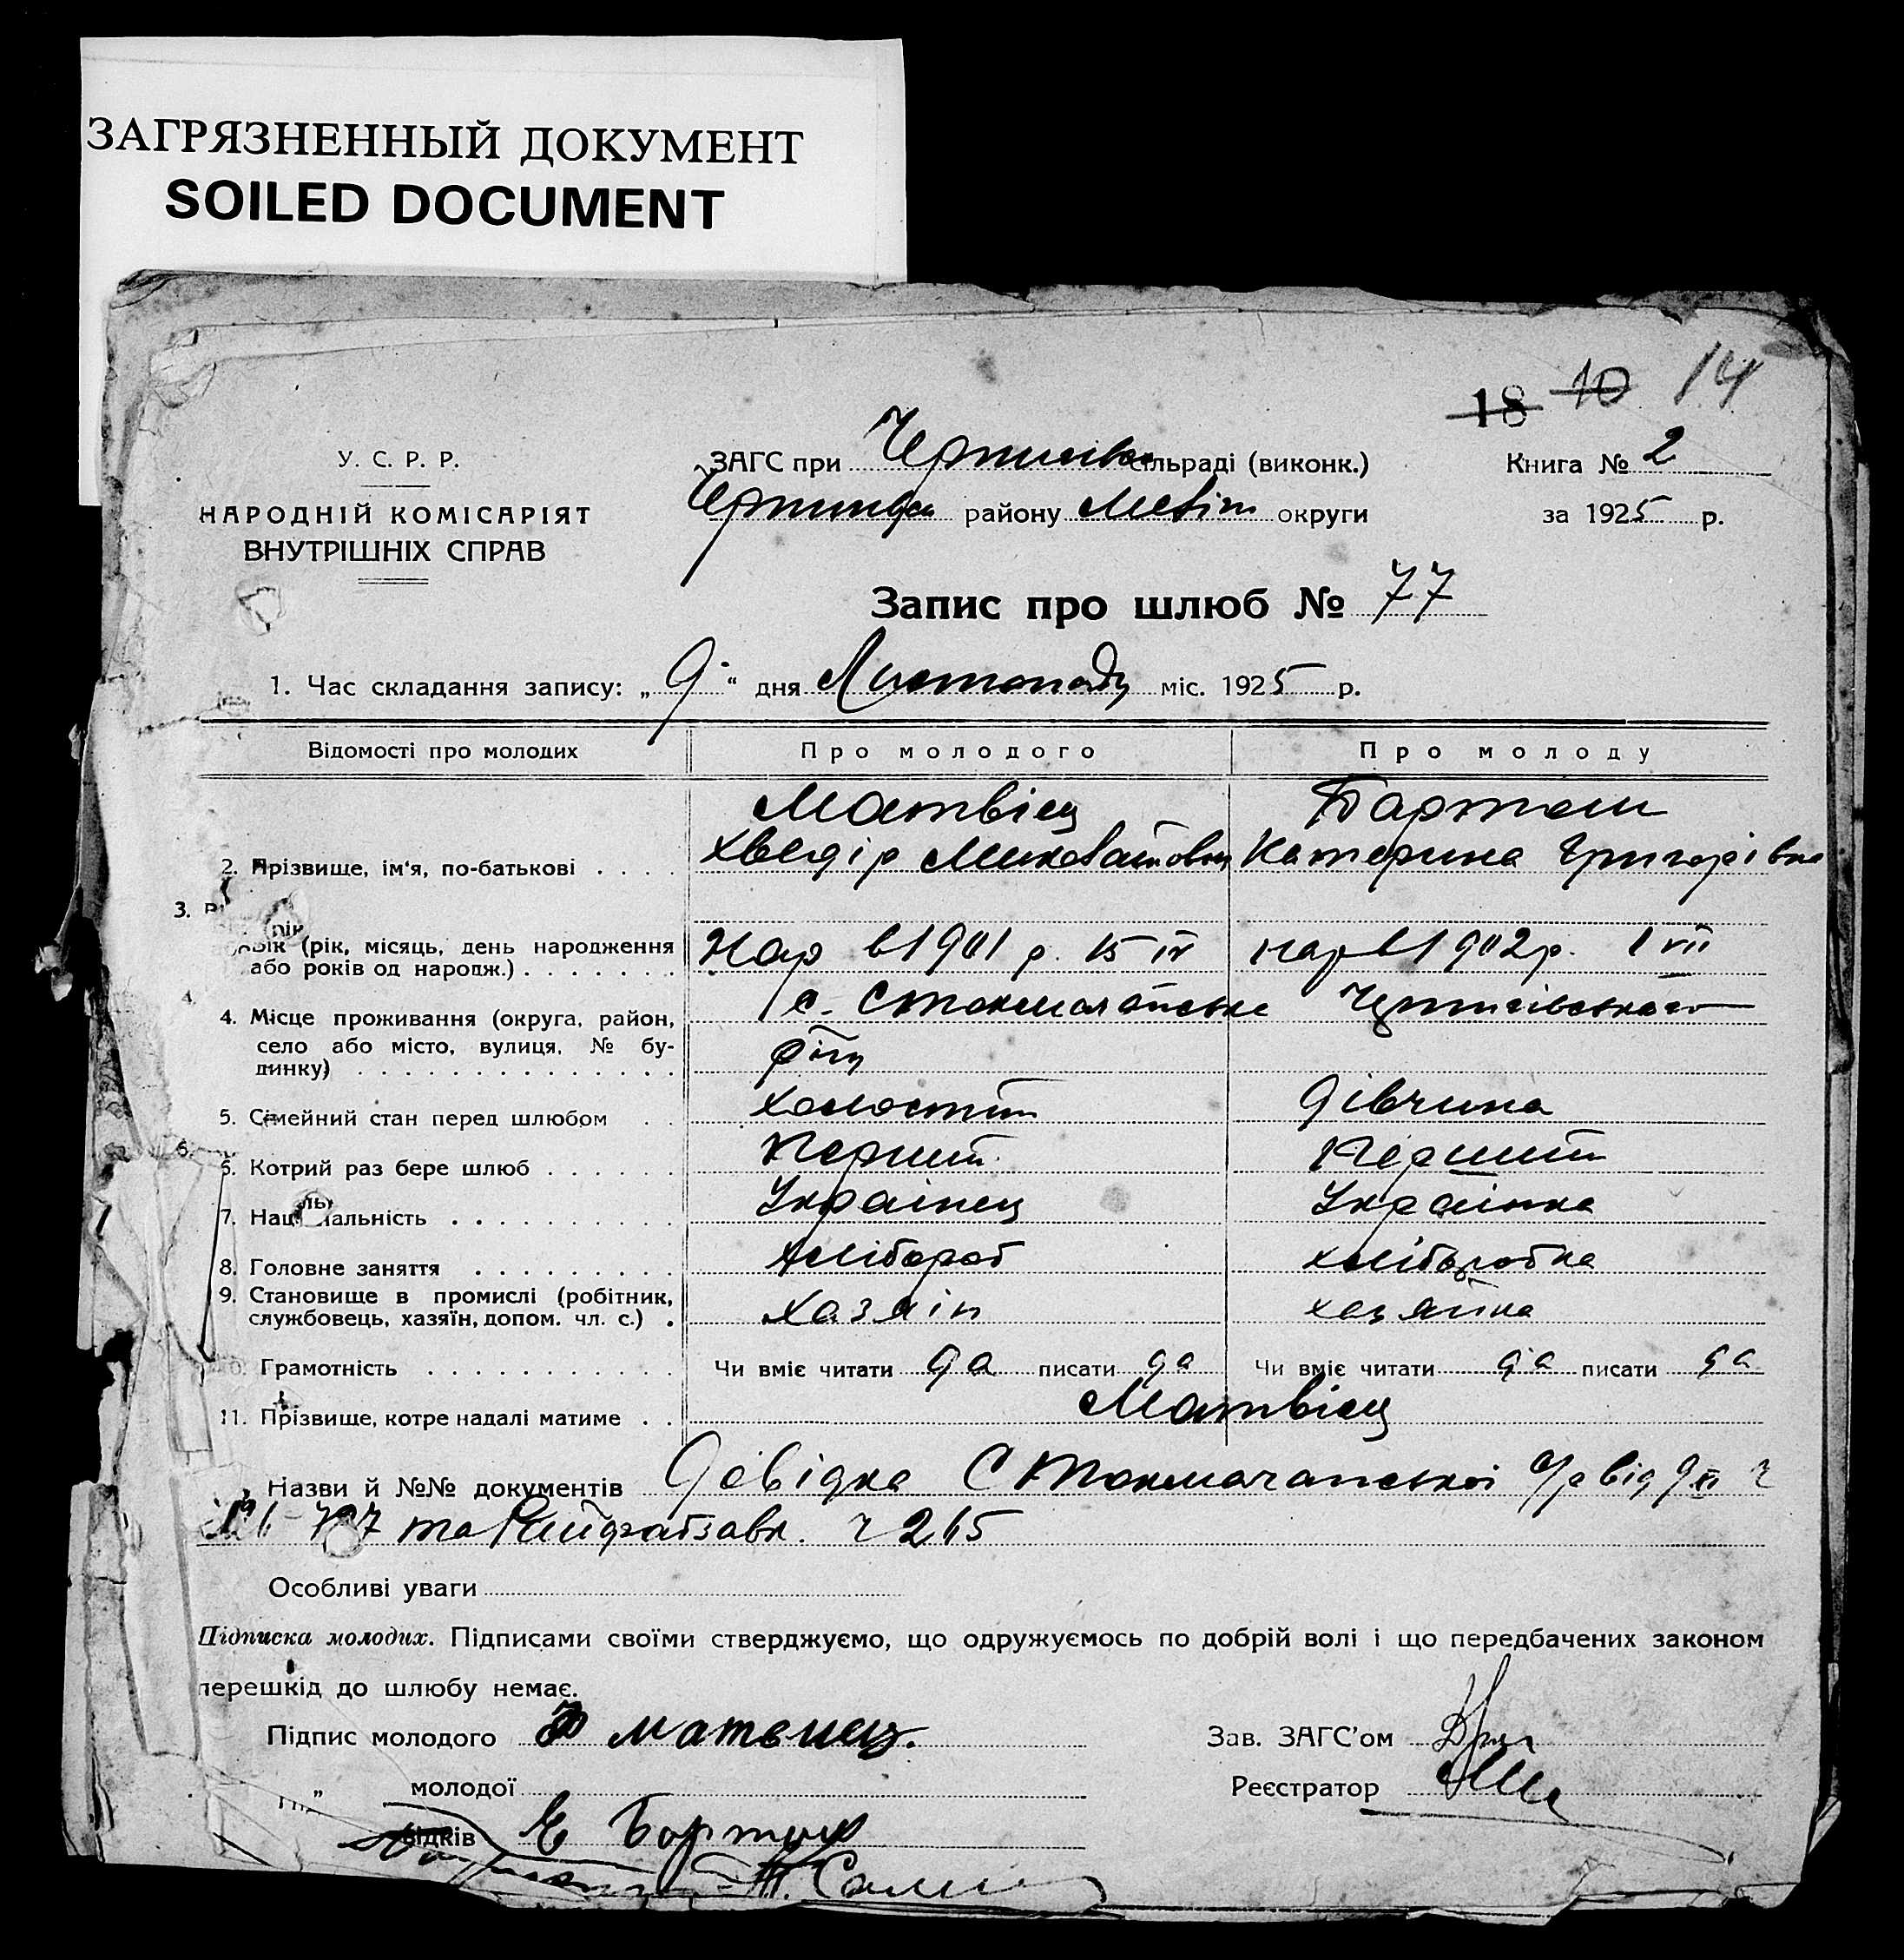 ЗАГРЯЗНЕННЫЙ ДОКУМЕНТ
SOILED DOCUMENT
18 10 14
У. С. Р. Р.
НАРОДНІЙ КОМІСАРІЯТ
ВНУТРІШНІХ СПРАВ
ЗАГС при сільраді (виконк.)
району Меліт округи
Книга № 2
за 1925 р.
Запис про шлюб № 77
1. Час складання запису: „ 9 “ дня Листопаду міс. 1925 р.
Відомості про молодих Про молодого Про молоду
Матвієц
2. Прізвище, ім'я, по-батькові . . . . Хведір Катерина Григорівна
3.
вік (рік, місяць, день народження
або років од народж.) . . . . . . . Нар в 1901 р. 15 IV нар в 1902 р. 1 VII
4. Місце проживання (округа, район,
село або місто, вулиця, № бу-
динку) . . . . . . . . . . . . . .
5. Сімейний стан перед шлюбом . . Холостий Дівчина
6. Котрий раз бере шлюб . . . . . . Перший Перший
7. Національність . . . . . . . . . . Українец Українка
8. Головне заняття . . . . . . . . . Хлібороб хліборобка
9. Становище в промислі (робітник,
службовець, хазяїн, допом. чл. с.) . Хазяін хазяйка
10. Грамотність . . . . . . . . . . . Чи вміє читати да писати да Чи вміє читати да писати да
11. Прізвище, котре надалі матиме . . Матвієц
Назви й №№ документів Довідка С Токмачанської с/р від 9 XI
та
Особливі уваги
Підписка молодих. Підписами своїми стверджуємо, що одружуємось по добрій волі і що передбачених законом
перешкід до шлюбу немає.
Підпис молодого матвиец.
Зав. ЗАГС'ом
„ молодої
Реєстратор
відків